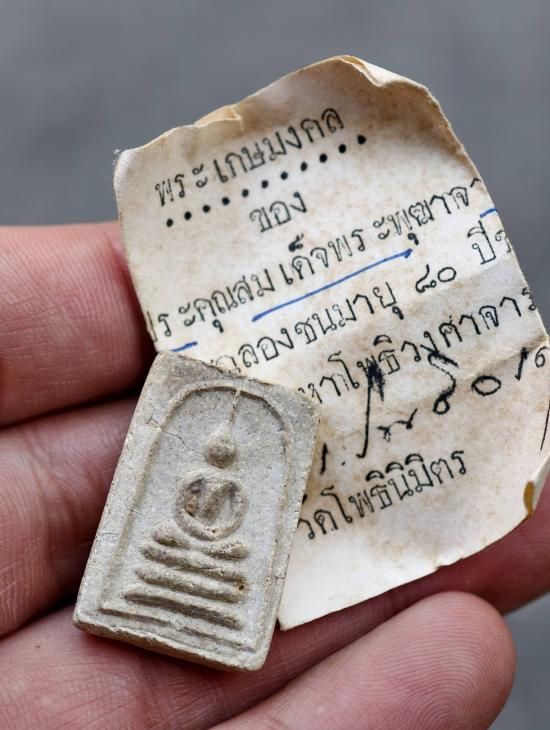 พระเกษมงคล
ของ
ระคุณสมเด็จพระพุฒาจา
ฉลองชนมายุ ๘๐ ปี
หาโพธิวงศาจาร
วัดโพธินิมิตร